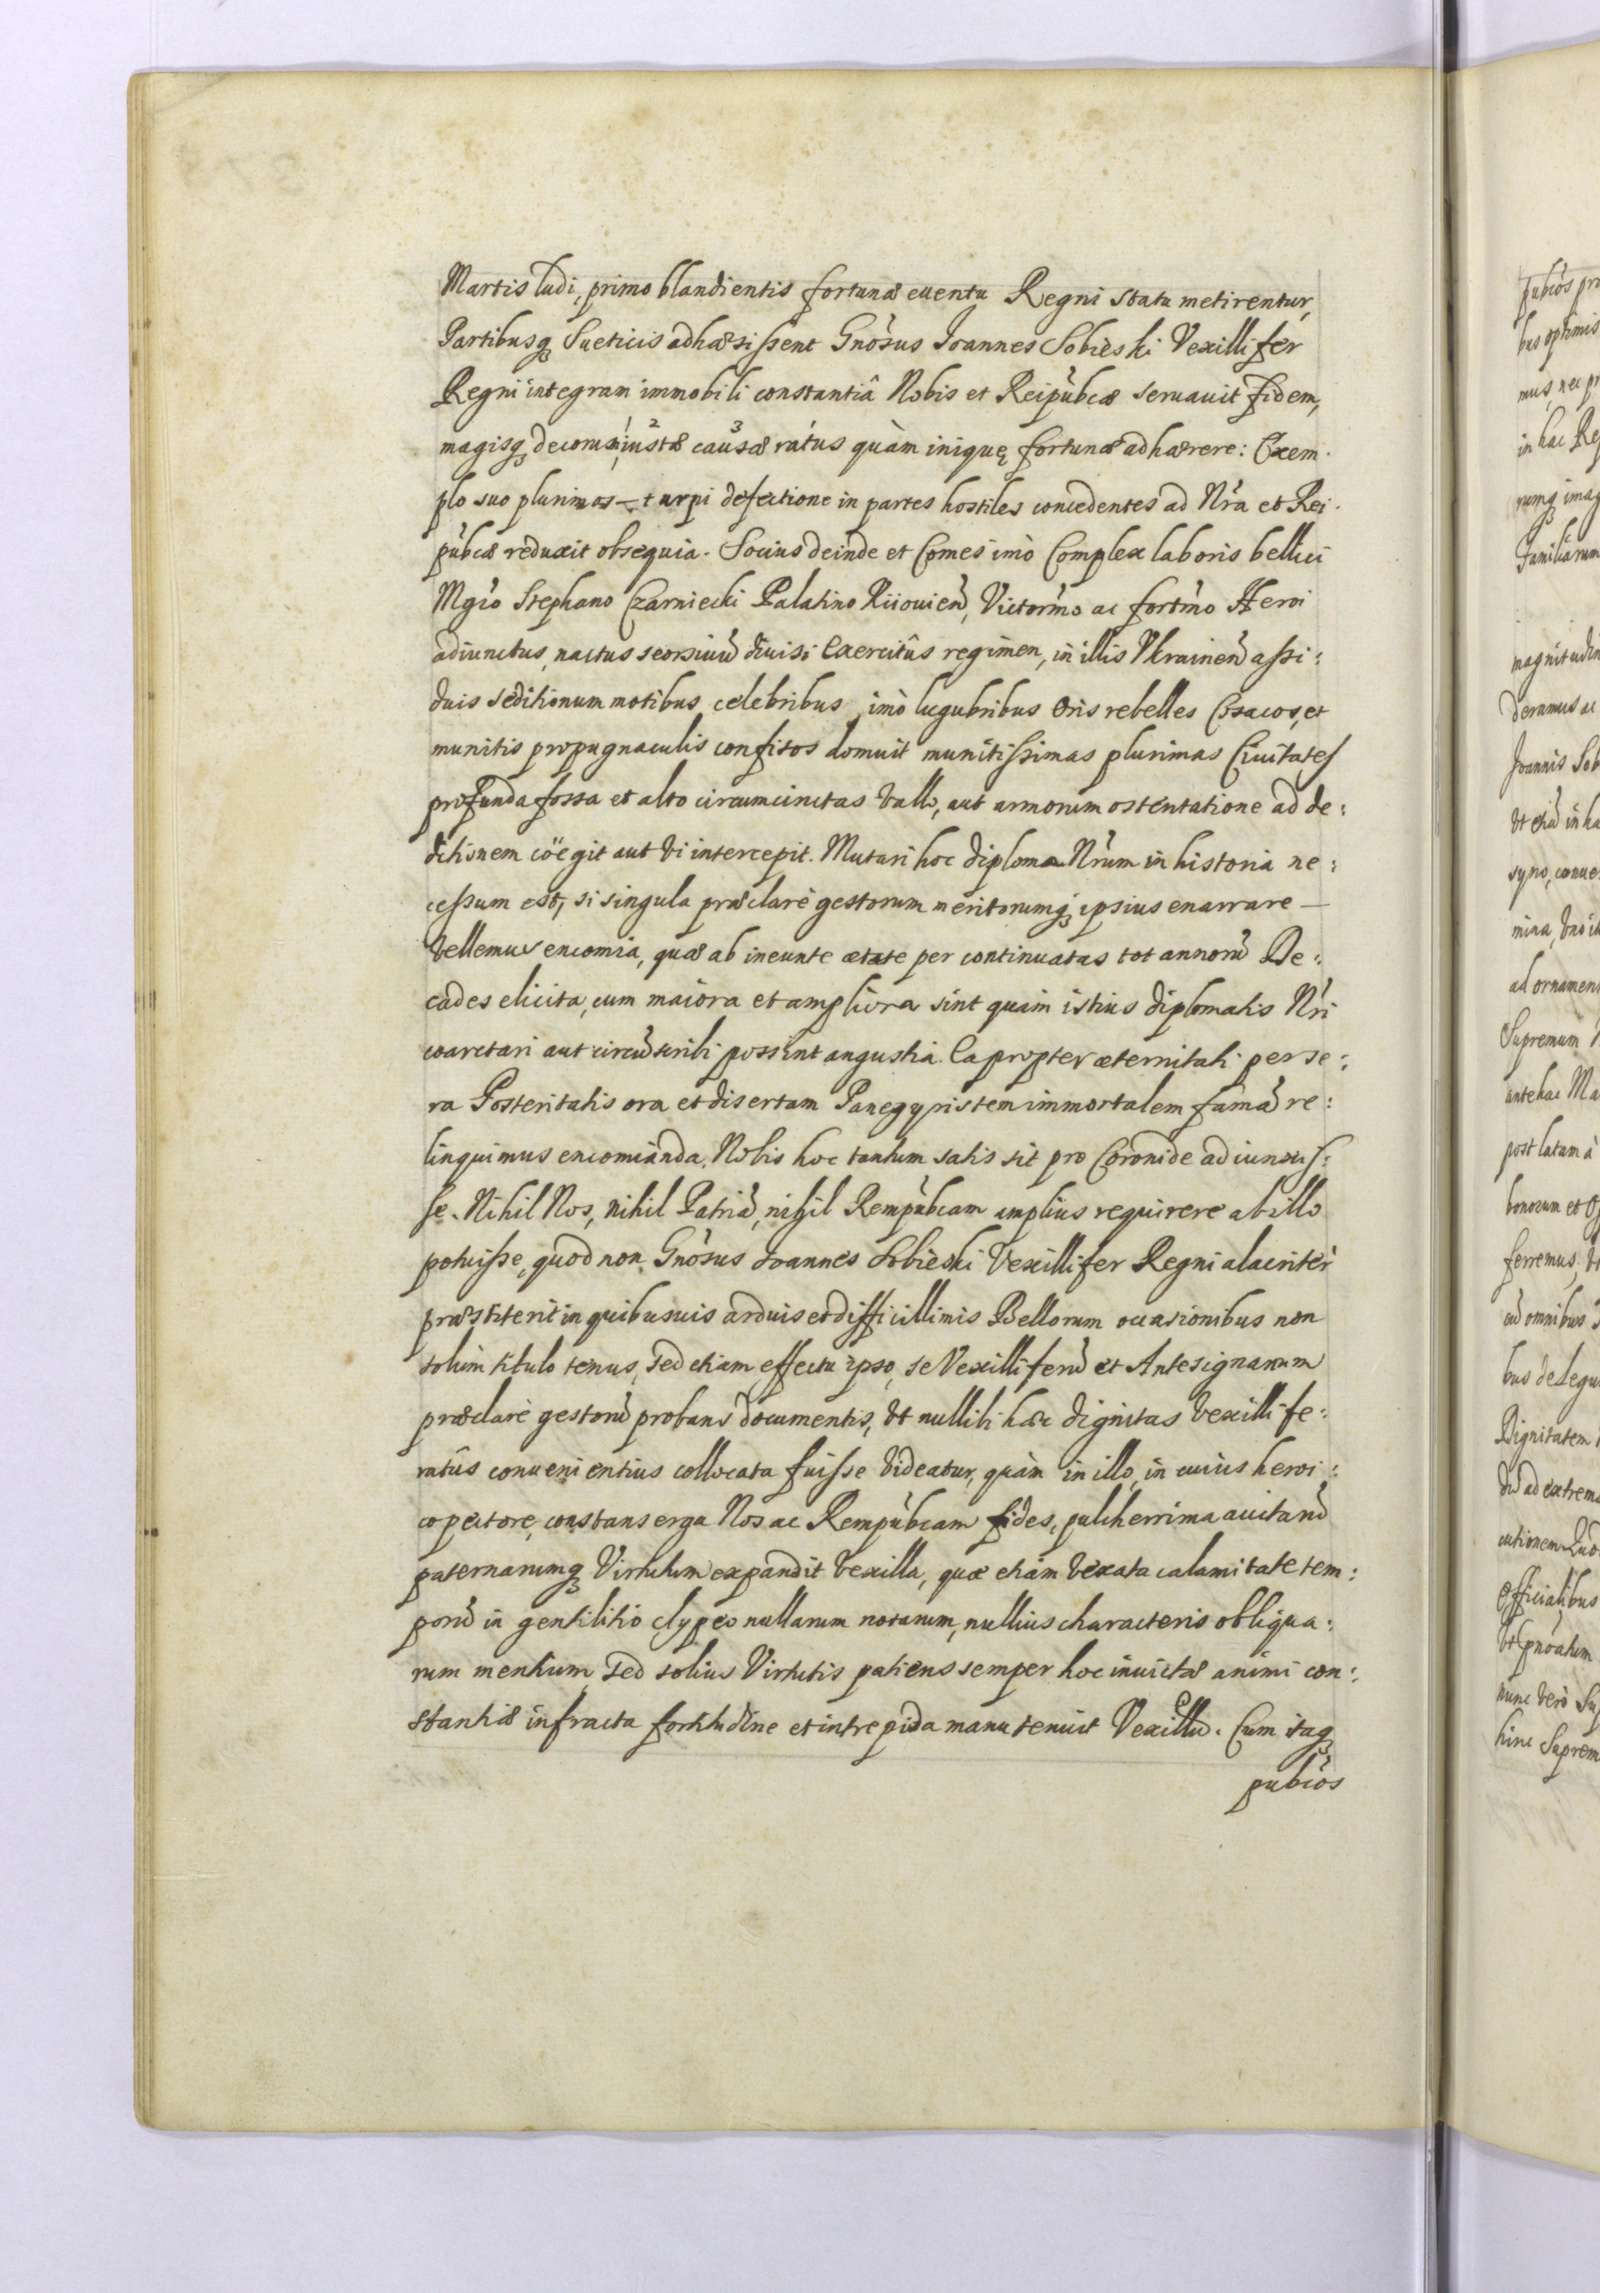 Martis ludi, primo blandientis fortunæ euentu Regni statu metirentur,
Partibusq3 Sueticis adhæsissent Gnòsus Ioannes Sobieski Vexillifer
Regni integram immobili constantiâ Nobis et Reipùbcæ seruauit fidem,
magisq3 decorum iustæ causæ ratus quàm iniquę fortunæ adhærere: Exem:
plo suo plurimos turpi defectione in partes hostiles concedentes ad Nr̃a et Rei:
pùbcæ reduxit obsequia. Socius deinde et Comes imò Complex laboris bellici
Mgco Stephano Czarniecki Palatino Kiiouieñ, Victormo ac fortmo Heroi
adiunctus, nactus seorsiuũ diuisi Exercitûs regimen, in illis Vkraineñ assi:
duis seditionum motibus celebribus, imò lugubribus oris rebelles Cosacos, et
munitis propugnaculis confisos domuit munitissimas plurimas Ciuitates
profunda fossa et alto circumcinctas vallo, aut armorum ostentatione ad de:
ditionem cöegit aut vi intercepit. Mutari hoc diploma Nr̃um in historia ne:
cessum est, si singula præclarè gestorum meritorumq3 ipsius enarrare —
vellemus encomia, quæ ab ineunte ætate per continuatas tot annorũ De:
cades elicita, cum maiora et ampliora sint quàm istius diplomatis Nr̃i
coarctari aut circũscribi possint angustia. Eapropter æternitati per se:
ra Posteritatis ora et disertam Panegyristem immortalem famã re:
linquimus encomianda. Nobis hoc tantum satis sit pro Coronide adiunxis:
se. Nihil Nos, nihil Patriã, nihil Rempùbcam amplius requirere ab illo
potuisse, quod non Gnòsus Ioannes Sobieski Vexillifer Regni alacritèr
præstiterit in quibusuis arduis et difficillimis Bellorum occasionibus non
solùm titulo tenus, sed etiam effectu ipso, se Vexilliferũ et Antesignanum
præclarè gestorũ probans documentis, vt nullibi hæc dignitas vexillife:
ratûs conuenientius collocata fuisse videatur, quàm in illo, in cuius heroi:
co pectore, constans erga Nos ac Rempùbcam fides, pulcherrima auitarũ
paternarumq3 Virtutum expandit vexilla, quæ etiam vexata calamitate tem:
porũ in gentilitio clypeo nullarum notarum, nullius characteris obliqua:
rum mentium, sed solius Virtutis patiens semper hoc inuictæ animi con:
stantiæ infracta fortitudine et intrepida manu tenuit Vexillũ. Cum itaq3
pubcos